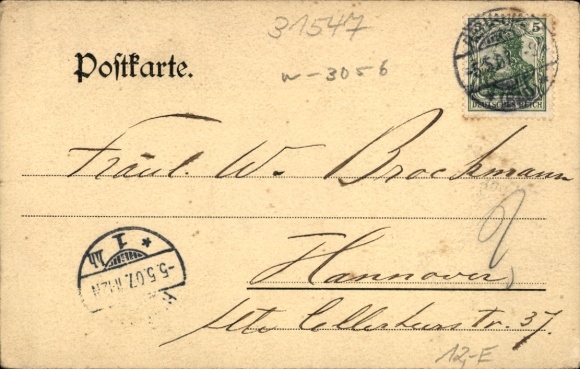 31547
w-3056
Postkarte.
5
DEUTSCHES REICH
5.5.07
Fräul. W. Brockmann
Hannover
Alte Cellerheerstr. 37.
-5.5.07.
* 1 hh
12,-E